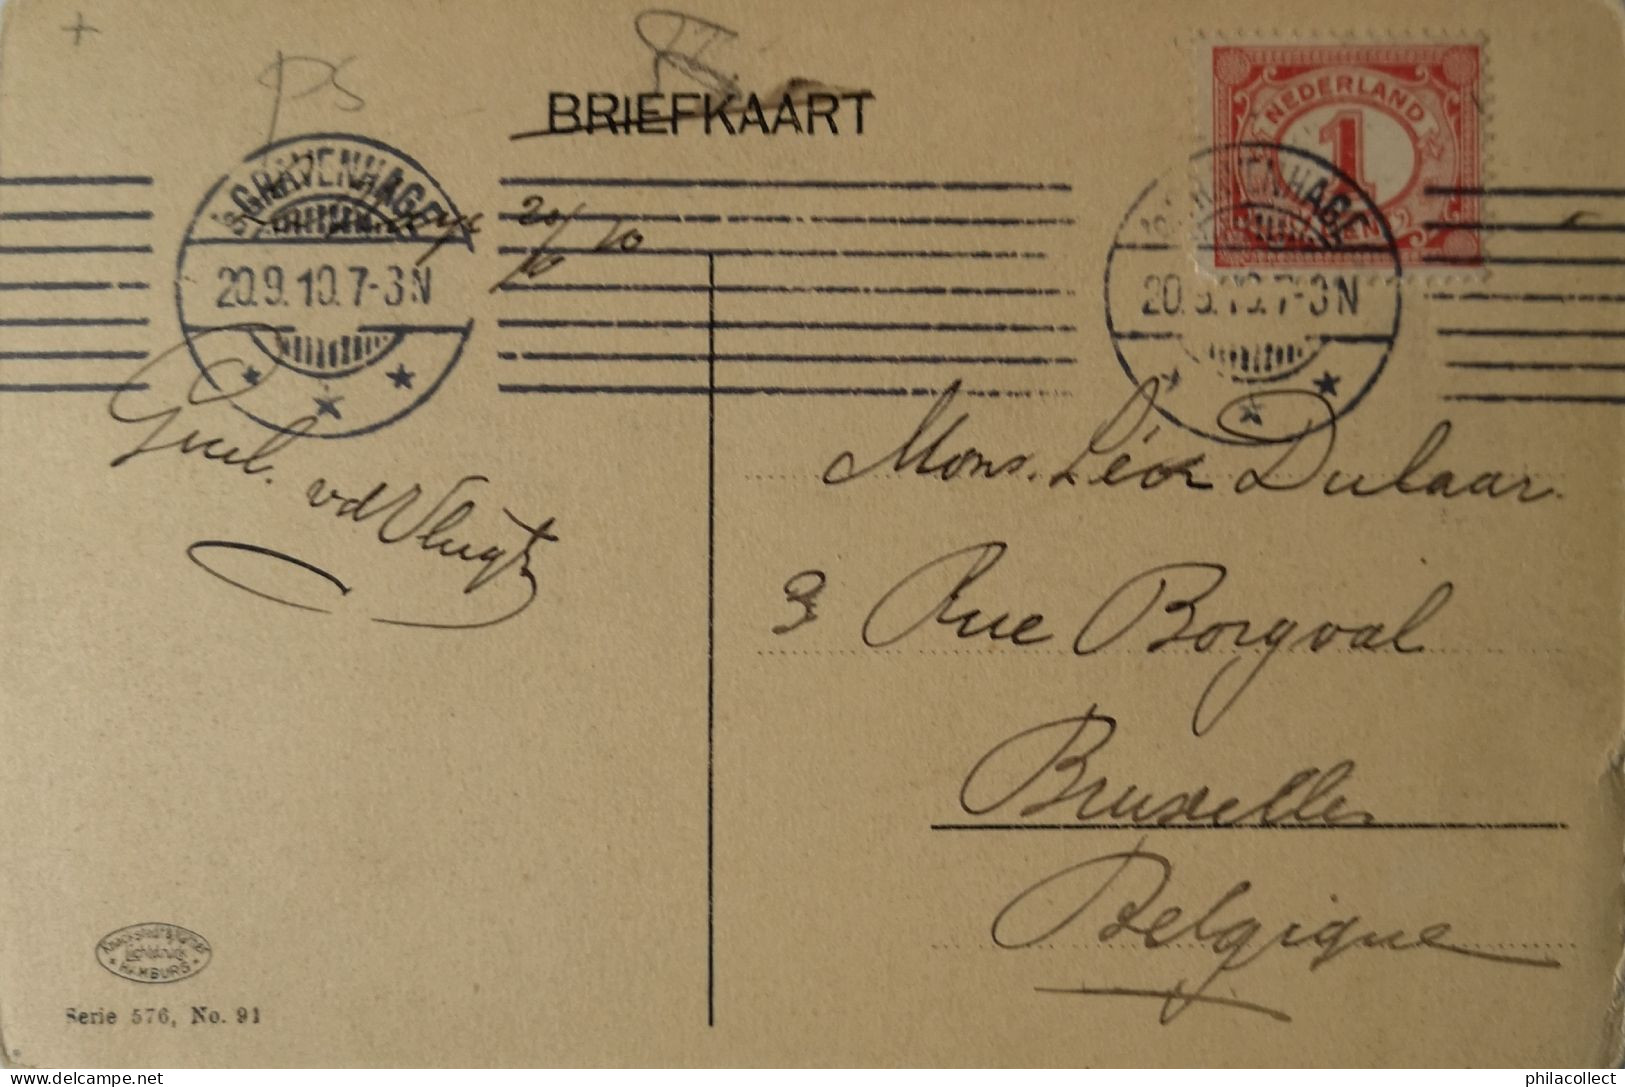 PS
BRIEFKAART
NEDERLAND
1
CENT
'S GRAVENHAGE
20.9.10.7-3N
'S GRAVENHAGE
20.9.10.7-3N
20/ 10
Guil.
vd Vlugt
Mons. Léon Dulaar.
3 Rue Borgval
Bruxelles
Belgique
Knackstedt & Näther
Lichtdruck
HAMBURG
Serie 576, No. 91
philacollect